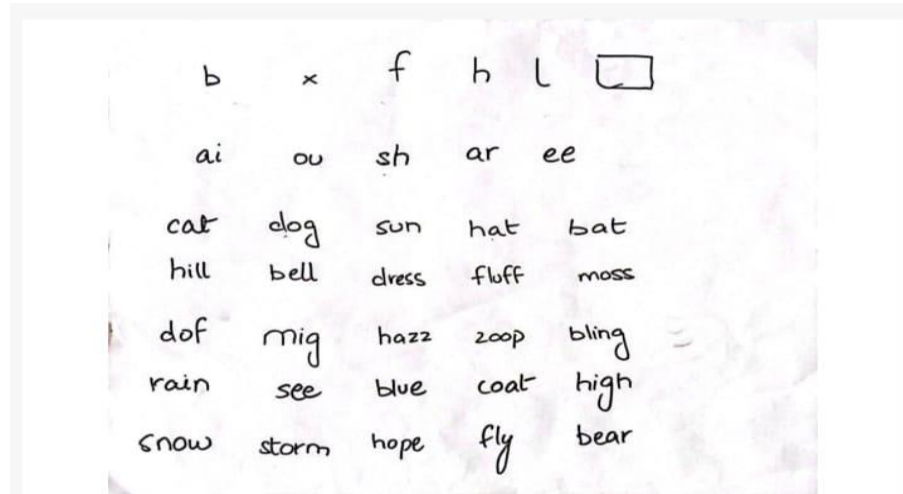 b x f h l
ai ou sh ar ee
cat dog sun hat bat
hill bell dress fluff moss
dof mig hazz zoop bling
rain see blue coat high
snow storm hope fly bear